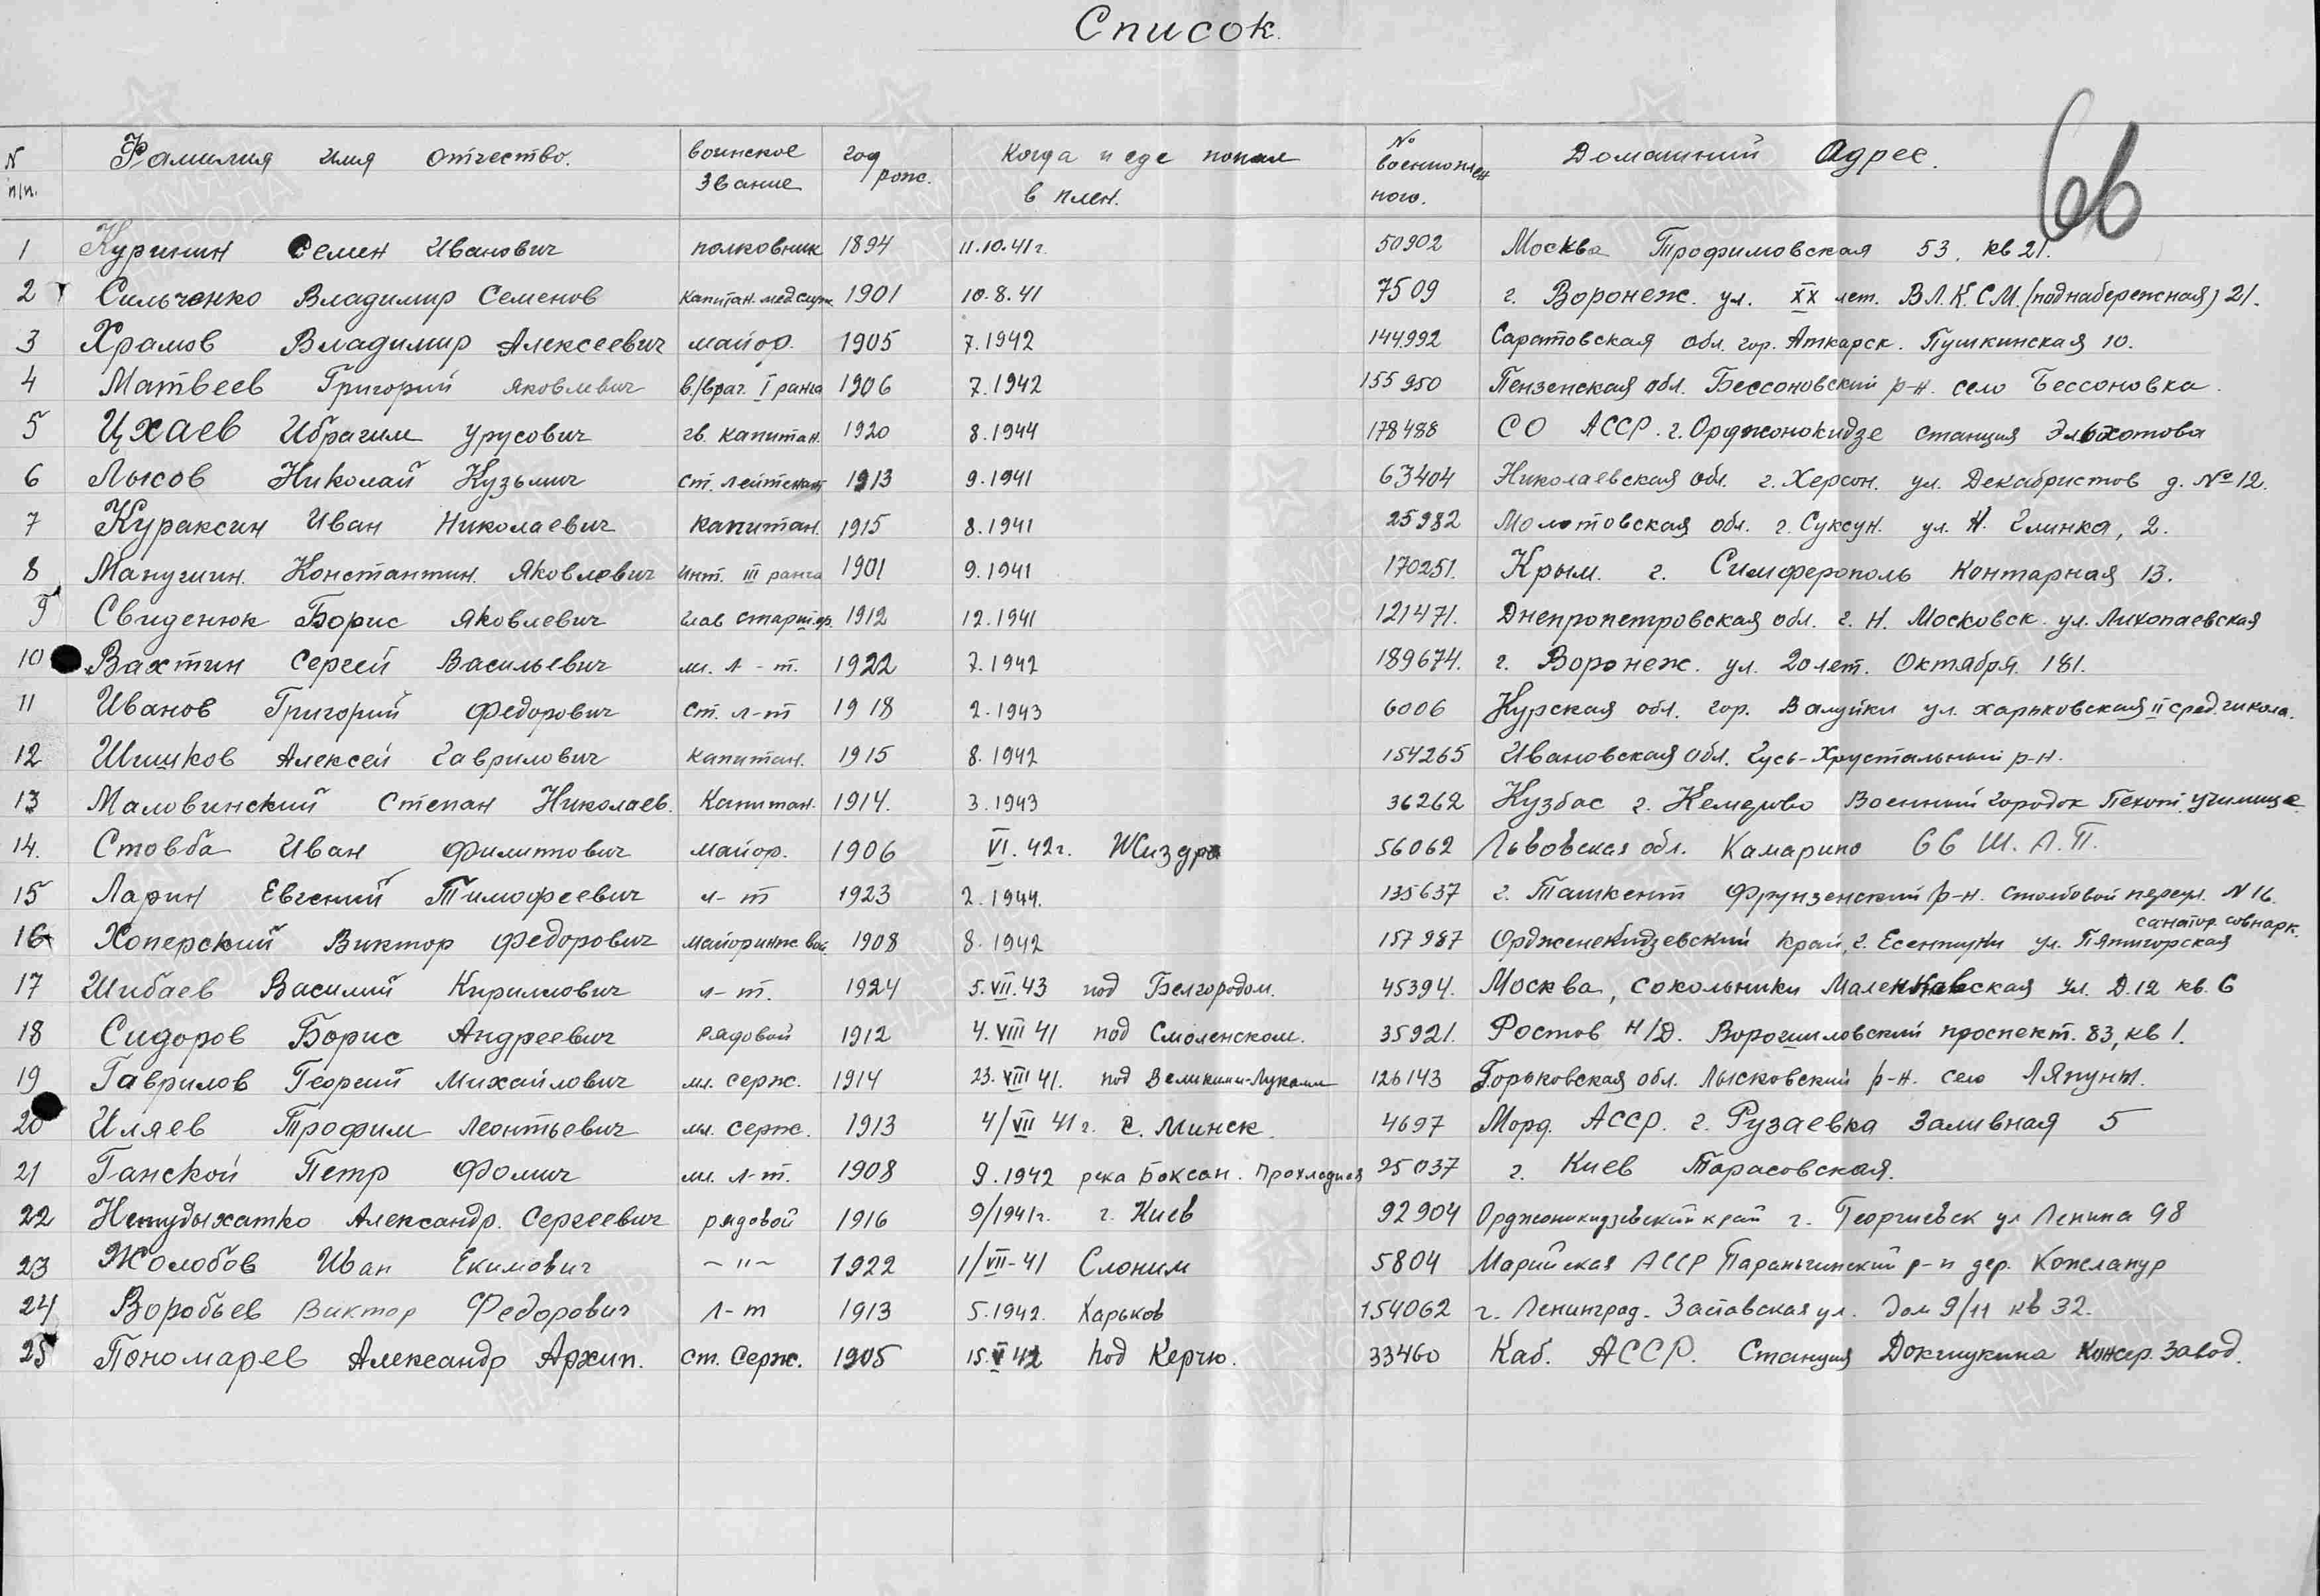 Список.
66
N п/п. Фамилия имя отчество. воинское звание год рожс. Когда и где попал в плен. № военноплен ного. Домашний Адрес.
1 Куринин Семен Иванович полковник 1894 11.10.41г. 50902 Москва Трофимовская 53, кв 21.
2 Сильченко Владимир Семенов капитан. мед служ. 1901 10.8.41 7509 г. Воронеж. ул. XX лет. В.Л.К.С.М. (поднабережная) 21.
3 Храмов Владимир Алексеевич майор. 1905 7.1942 144992 Саратовская обл. гор. Аткарск. Пушкинская 10.
4 Матвеев Григорий Яковлевич в/врач. I ранга 1906 7.1942 155950 Пензенская обл. Бессоновский р-н. село Бессоновка.
5 Цхаев Ибрагим Урусович гв. капитан. 1920 8.1944 178488 СО АССР. г. Орджонокидзе станция Эльхотова
6 Лысов Николай Кузьмич ст. лейтенант 1913 9.1941 63404 Николаевская обл. г. Херсон. ул. Декабристов д. № 12.
7 Кураксин Иван Николаевич капитан. 1915 8.1941 25982 Молотовская обл. г. Суксун. ул. Н. Глинка, 2.
8 Манугшин. Константин. Яковлевич инт. III ранга 1901 9.1941 170251. Крым. г. Симферополь Контарная 13.
9 Свиденюк Борис Яковлевич глав старш. 1912 12.1941 121471. Днепропетровская обл. г. Н. Московск. ул. Лихопаевская
10 Вахтин Сергей Васильевич мл. л-т. 1922 7.1942 189674. г. Воронеж. ул. 20 лет. Октября. 181.
11 Иванов Григорий Федорович ст. л-т 1918 2.1943 6006 Курская обл. гор. Валуйки ул. харьковская II сред. школа.
12 Шишков Алексей Гаврилович капитан. 1915 8.1942 154265 Ивановская обл. Гусь-Хрустальный р-н.
13 Маловинский Степан Николаев. Капитан. 1914. 3.1943 36262 Кузбас г. Кемерово Военный городок Пехот. училище
14. Стовба Иван Филиппович майор. 1906 VI.42г. Жиздра 56062 Львовская обл. Камарино 66 Ш.А.П.
15 Ларин Евгений Тимофеевич л-т 1923 2.1944. 135637 г. Ташкент Фрунзенский р-н. Столбовой переул. N 16.
16 Хоперский Виктор Федорович майор инж. вой. 1908 8.1942 157987 Ордженекидзевский край, г. Есентуки ул. Пятигорская санатор. совнарк.
17 Шибаев Василий Кириллович л-т. 1924 5.VII.43 под Белгородом. 45394. Москва, сокольники Маленковская ул. Д.12 кв. 6
18 Сидоров Борис Андреевич рядовой 1912 4.VIII 41 под Смоленском. 35921. Ростов н/Д. Ворошиловский проспект. 83, кв 1.
19 Гаврилов Георгий Михайлович мл. серж. 1914 23.VIII 41. под Великими-Луками 126143 Горьковская обл. Лысковский р-н. село Ляпунт.
20 Иляев Трофим Леонтьевич мл. серж. 1913 4/VII 41г. г. Минск. 4697 Морд. АССР. г. Рузаевка Заливная 5
21 Ганской Петр Фомич мл. л-т. 1908 9.1942 река Боксан. Прохладная 25037 г. Киев Тарасовская.
22 Непудыхатко Александр. Сергеевич рядовой 1916 9/1941г. г. Киев 92904 Орджоникидзевский край г. Георгиевск ул Ленина 98
23 Жолобов Иван Екимович –"– 1922 1/VII-41 Слоним 5804 Марийская АССР Параньгинский р-н дер. Кожлапур
24 Воробьев Виктор Федорович л-т 1913 5.1942. Харьков 154062 г. Ленинград. Заставская ул. дом 9/11 кв 32.
25 Пономарев Александр Архип. ст. Серж. 1905 15.V 42 под Керчю. 33460 Каб. АССР. Станция Докшукина Консер. завод.